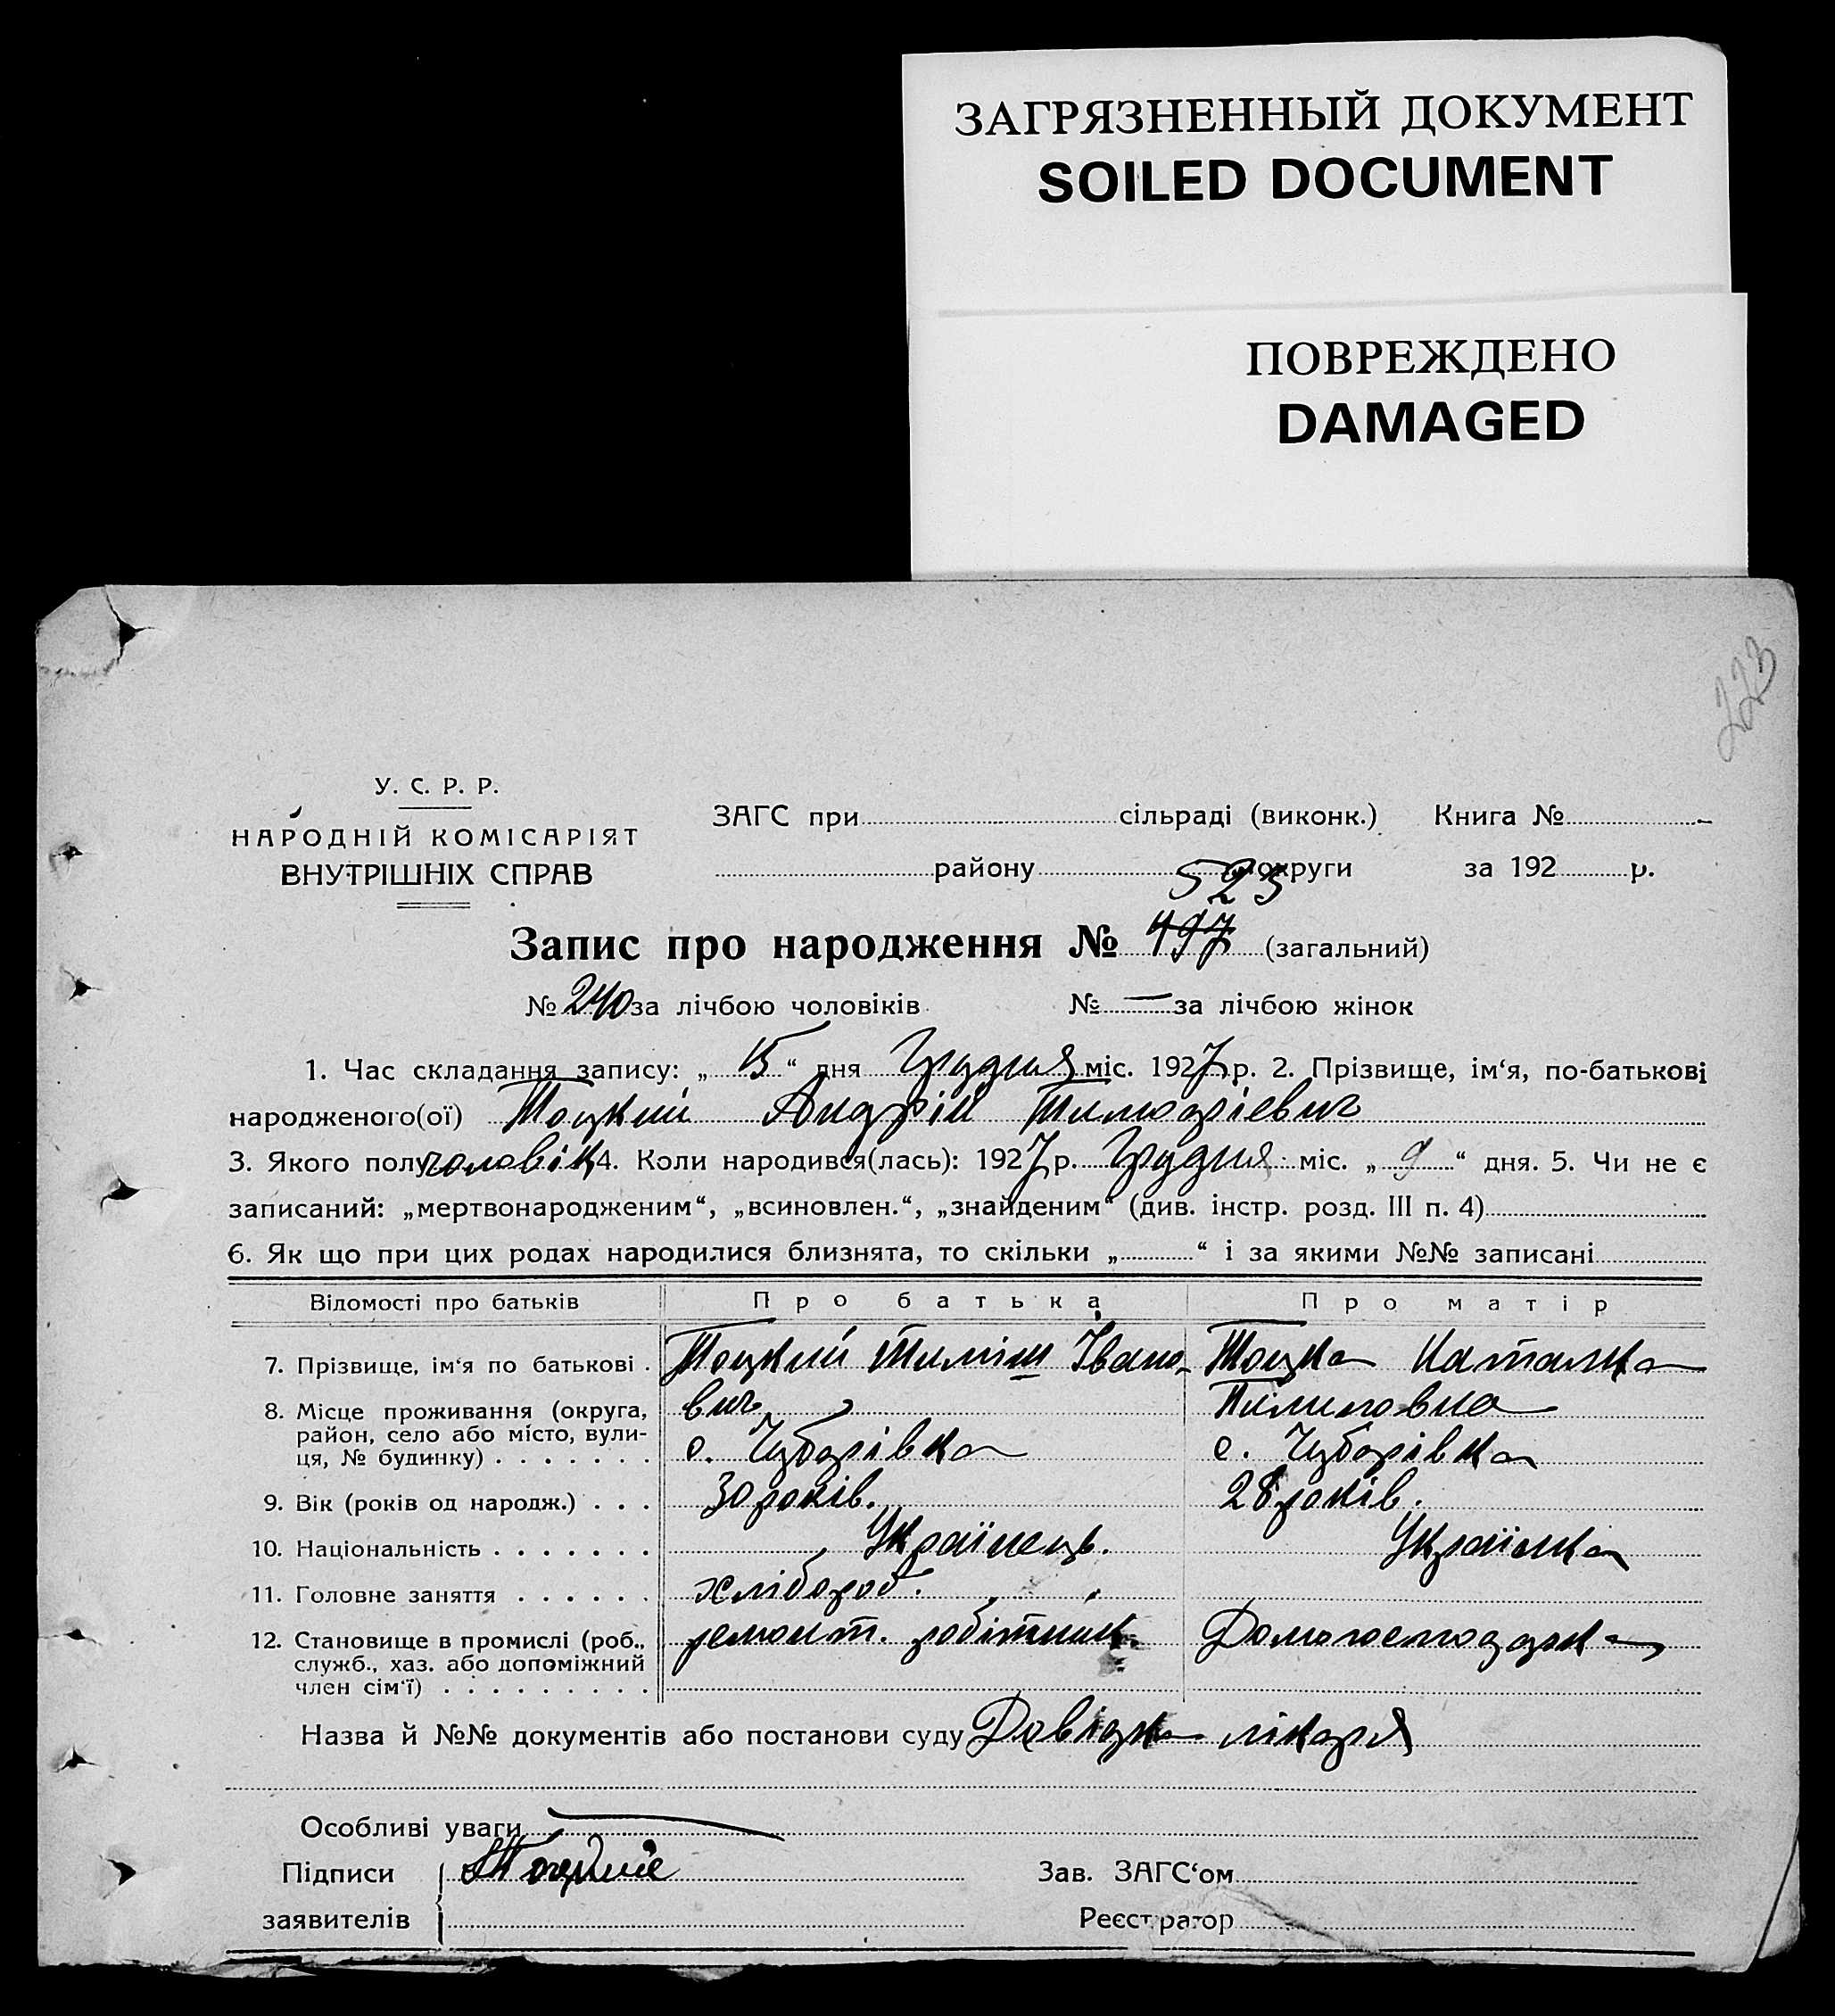 ЗАГРЯЗНЕННЫЙ ДОКУМЕНТ
SOILED DOCUMENT
ПОВРЕЖДЕНО
DAMAGED
223
У. С. Р. Р.
НАРОДНІЙ КОМІСАРІЯТ
ВНУТРІШНІХ СПРАВ
ЗАГС при сільраді (виконк.) Книга №
району округи за 192 р.
523
Запис про народження № 497 (загальний)
№ 240 за лічбою чоловіків № — за лічбою жінок
1. Час складання запису: „ 15 “ дня Грудня міс. 1927 р. 2. Прізвище, ім‘я, по-батькові
народженого(ої) Тоцкий Андрій Тимофіевич
3. Якого полу чоловік 4. Коли народився(лась): 1927 р. Грудня міс. „ 9 “ дня. 5. Чи не є
записаний: „мертвонародженим“, „всиновлен.“, „знайденим“ (див. інстр. розд. III п. 4)
6. Як що при цих родах народилися близнята, то скільки „ “ і за якими №№ записані
Відомості про батьків Про батька Про матір
7. Прізвище, ім‘я по батькові . Тоцкий Тиміш Івано- Тоцка Наталка
вич Пилиповна
8. Місце проживання (округа,
район, село або місто, вули-
ця, № будинку) . . . . . . . с. Чубарівка с. Чубарівка
9. Вік (років од народж.) . . . 30 років. 28 років.
10. Національність . . . . . . . Українець. Українка
11. Головне заняття . . . . . . хлібороб.
12. Становище в промислі (роб., ремонт. робітник Домогосподарка
служб., хаз. або допоміжний
член сім‘ї) . . . . . . . . .
Назва й №№ документів або постанови суду Довідка лікаря
Особливі уваги
Підписи Зав. ЗАГС‘ом
заявителів Реєстратор